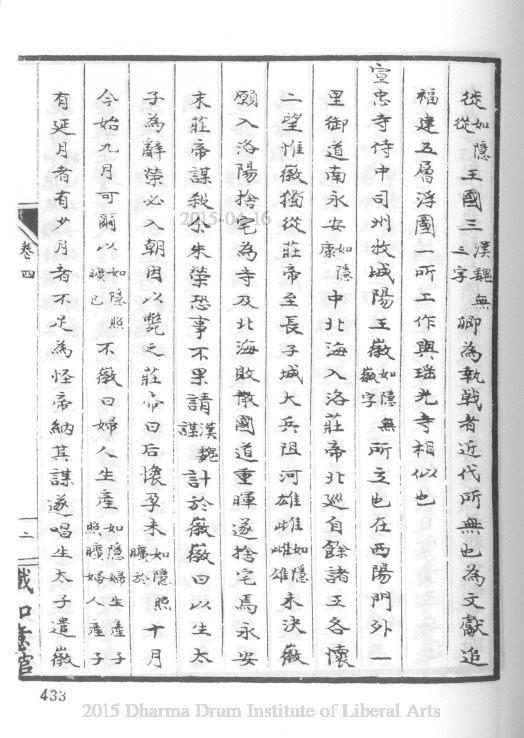 從如隱從王國三漢魏無三字卿為執戟者近代所無也為文獻追
福建五層浮圖一所工作與瑤光寺相似也
宣忠寺侍中司州牧城陽王徽如隱無徽字所立也在西陽門外一
里御道南永安如隱康中北海入洛莊帝北巡自餘諸王各懷
二望惟徽獨從莊帝至長子城大兵阻河雄雌如隱雌雄未決徽
願入洛陽捨宅為寺及北海敗散國道重暉遂捨宅焉永安
末莊帝謀殺尒朱榮恐事不果請漢魏謀計於徽徽曰以生太
子為辭榮必入朝因以斃之莊帝曰后懷孕未如隱照曠於十月
今始九月可爾以如隱照曠已不徽曰婦人生產如隱婦生產子照曠婦人產子
有延月者有少月者不足為怪帝納其謀遂唱生太子遣徽
卷四
二
433
2015-04-16
2015 Dharma Drum Institute of Liberal Arts